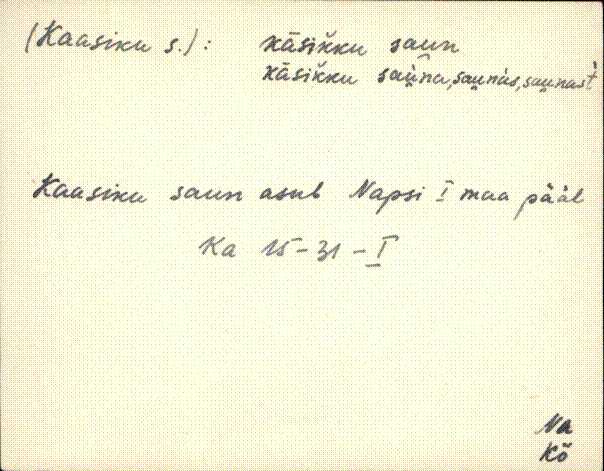 (Kaasiku s.): kāsikku saun
kāsikku sau̯na, sau̯nàs, sau̯nast
Kaasiku saun asub Napsi I maa pääl
Ka 15-31-I
Na
Kõ